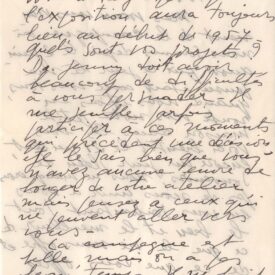 l'exposition aura toujours
lieu, au début de 1957
quels sont vos projets ?
Jenny doit avoir
beaucoup de difficultés
à vous Il
me semble parfois
participer à ces moments
qui précèdent une décision
Je sais bien que vous
n'avez aucune envie de
bouger de votre atelier
mais pensez à ceux qui
ne peuvent aller vers
vous -
La campagne est
belle, mais on a